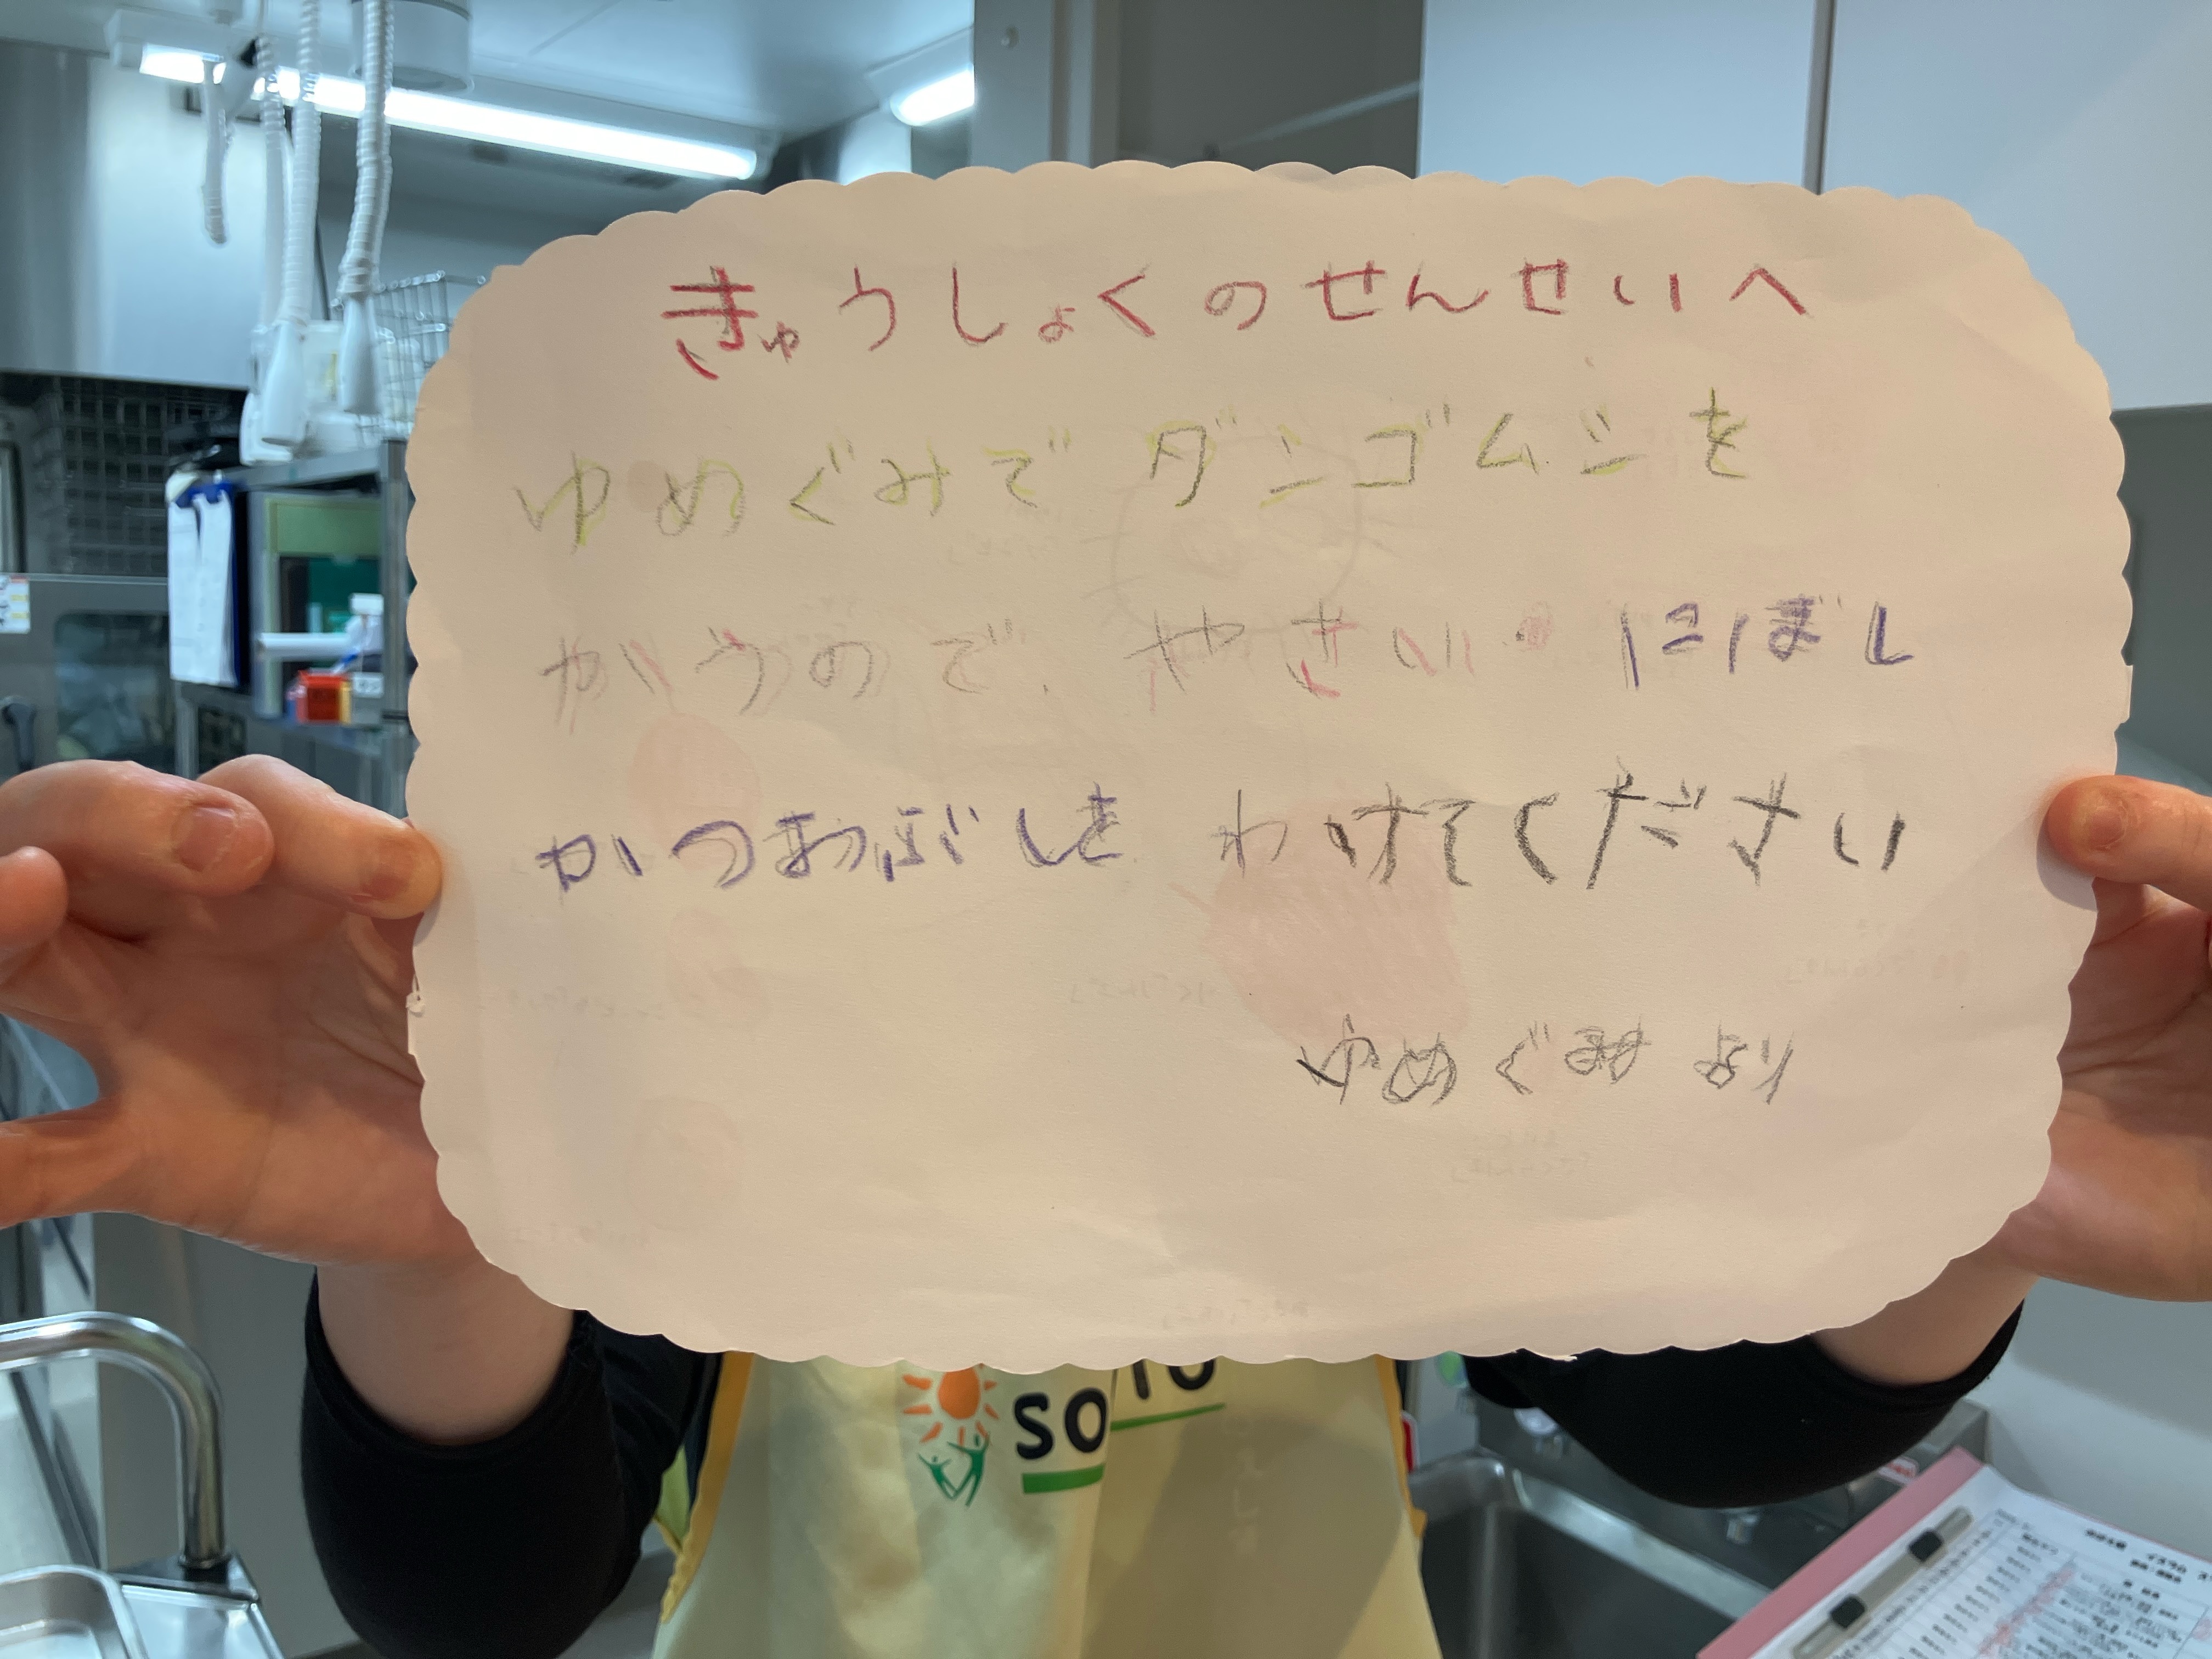 きゅうしょくのせんせいへ
ゆめぐみで ダンゴムシを
かうので、やさい・にぼし
かつおぶしを わけてください
ゆめぐみ より
so